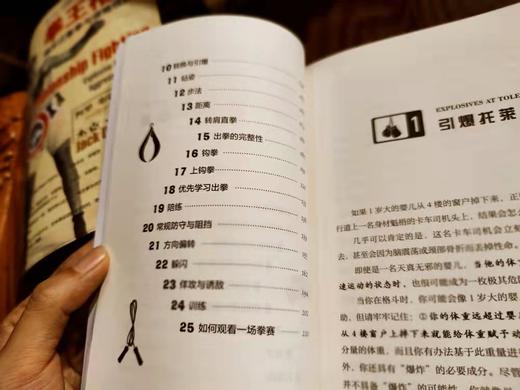 拳王
Championship Fighting
Jack De
10 转换与引爆
11 站姿
12 步法
13 距离
14 转肩直拳
15 出拳的完整性
16 钩拳
17 上钩拳
18 优先学习出拳
19 陪练
20 常规防守与阻挡
21 方向偏转
22 躲闪
23 佯攻与诱敌
24 训练
25 如何观看一场拳赛
EXPLOSIVES AT TOLE
1 引爆托莱
如果1岁大的婴儿从4楼的窗户掉下来，正
行道上一名身材魁梧的卡车司机头上，结果会怎
几乎可以肯定的是，这名卡车司机会立刻
去，甚至会因为脑震荡或颈部骨折而丢掉性命。
即使是一名天真无邪的婴儿，当他的体重
速运动的状态时，也很可能成为一枚极其危险
当你在格斗时，你可能会像1岁大的婴
助，但请牢牢记住：①你的体重远超过婴
从4楼窗户上摔下来就能给体重赋予动
分量的体重，而且你有办法基于此重量进
外，你还具有“爆炸”的必要成分。尽管
并不具备“爆炸”的